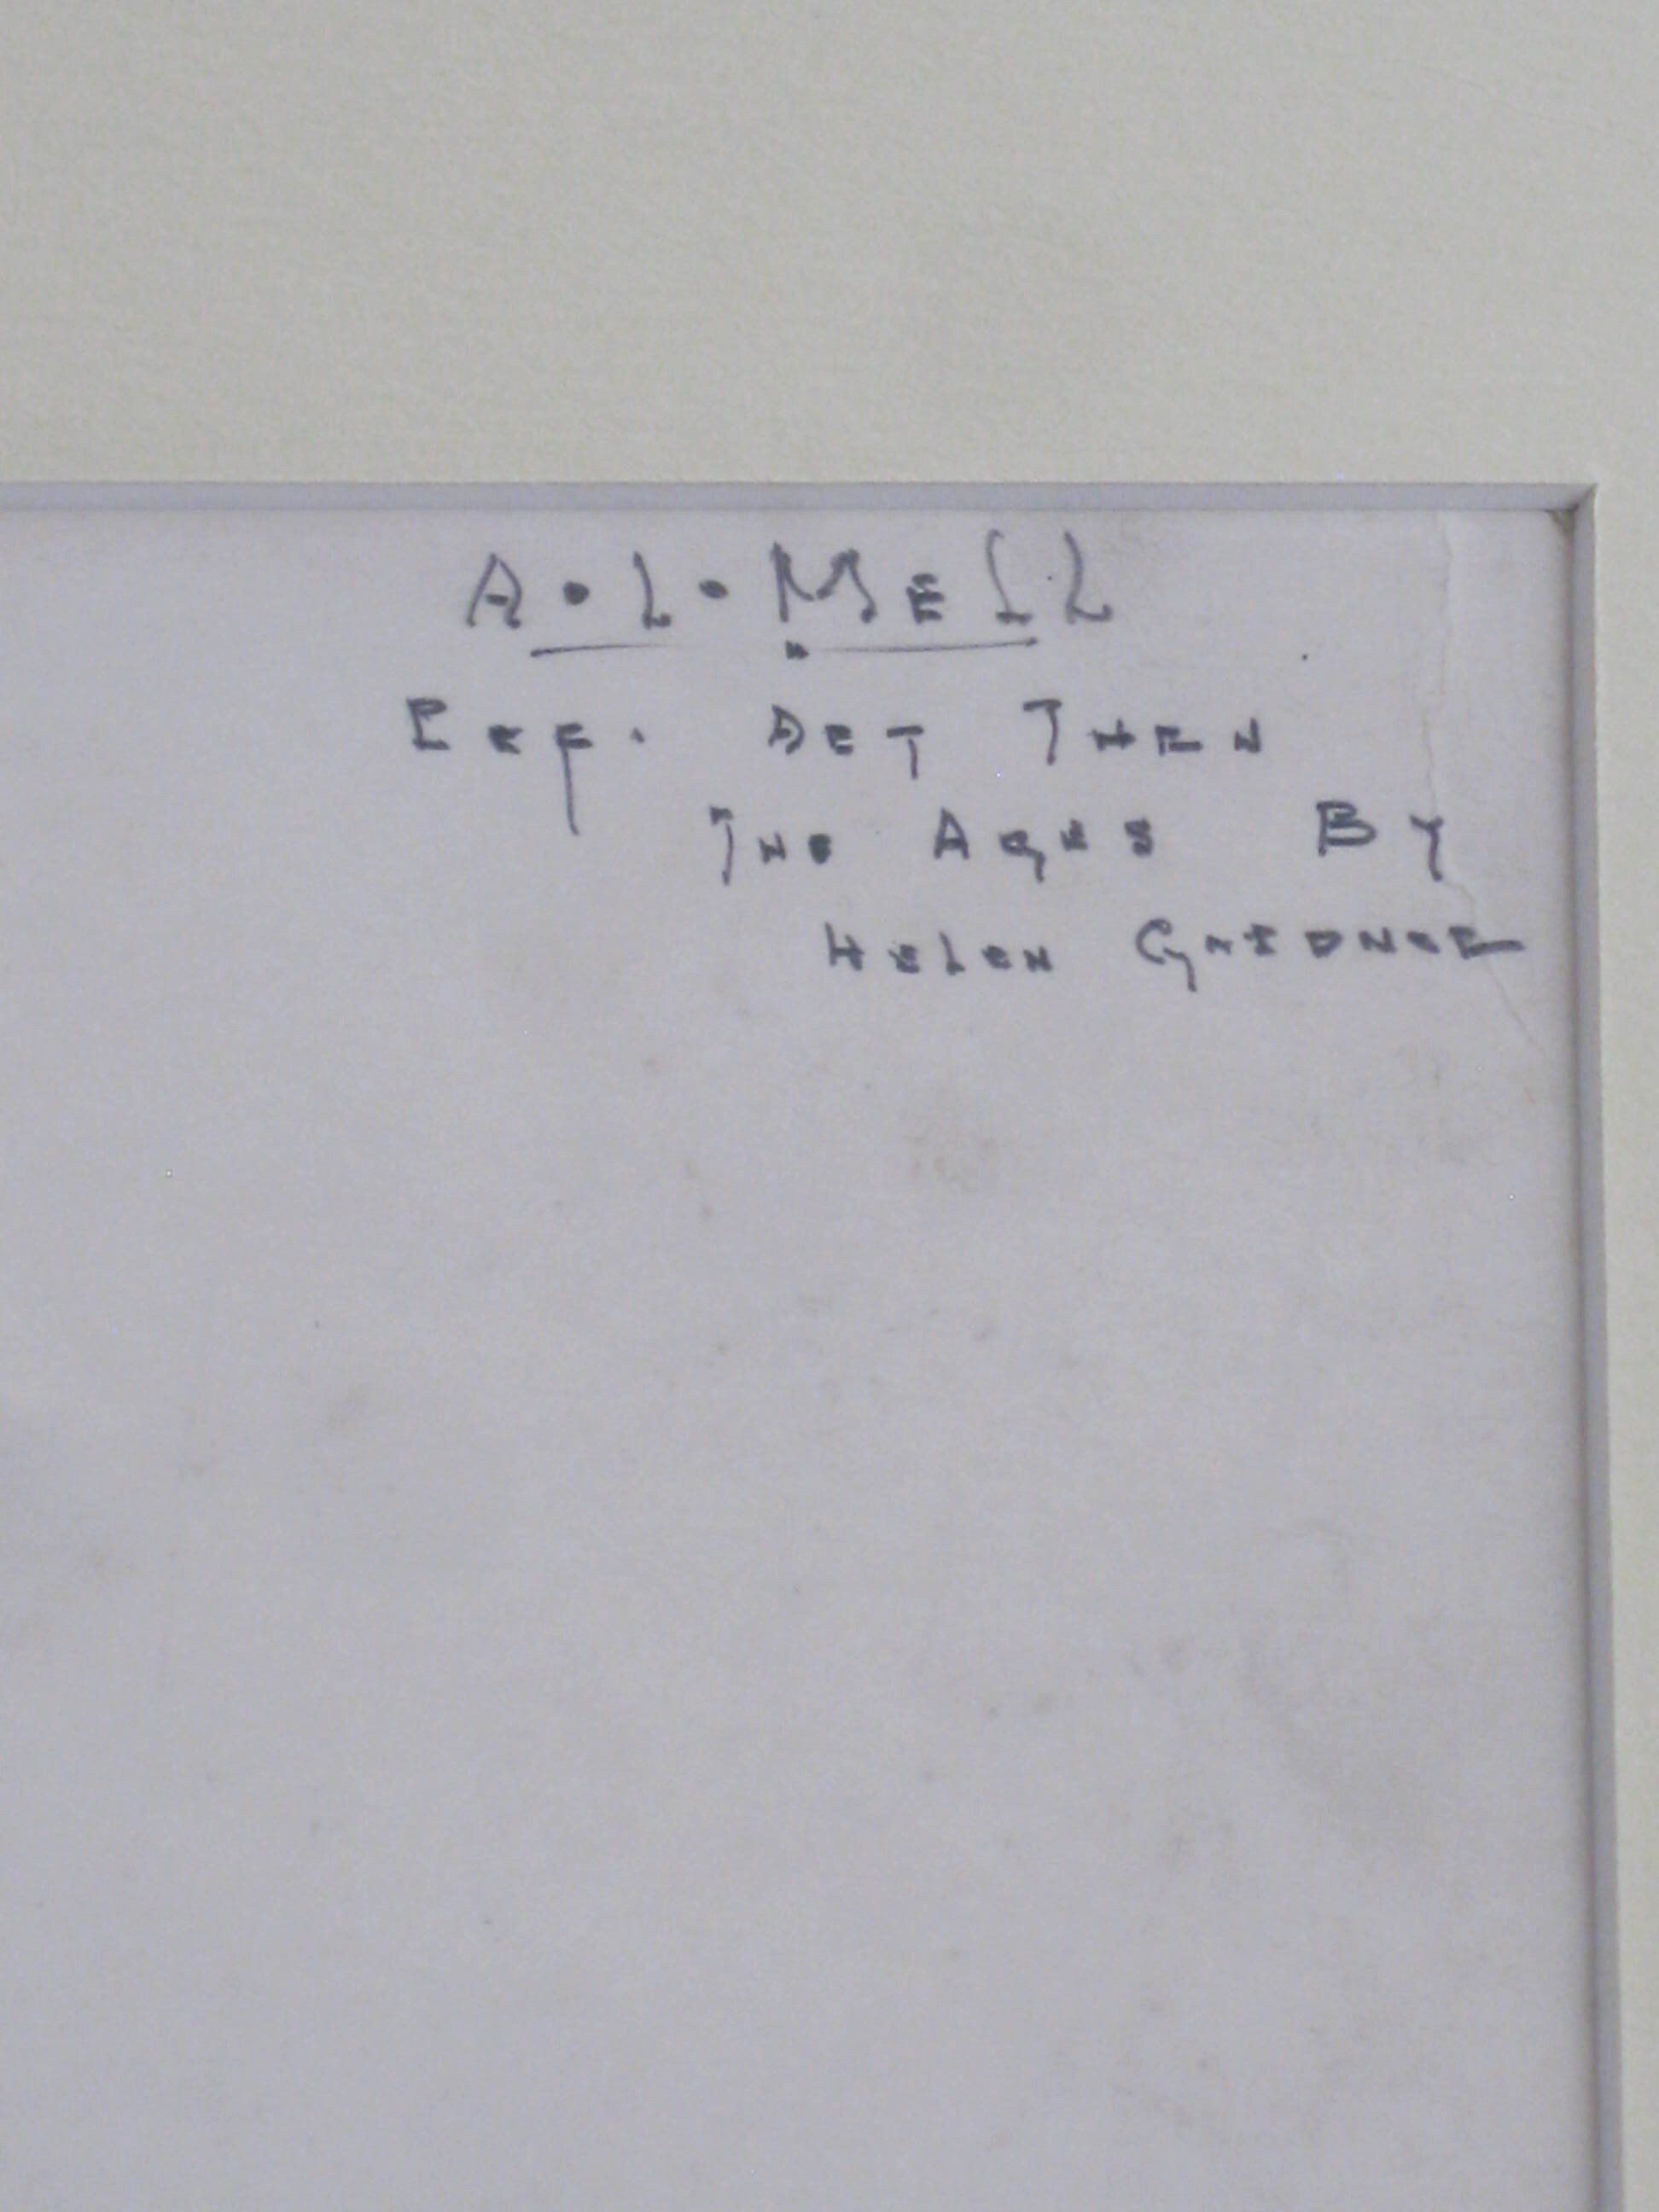 A·L·MELL
REF. ART THRU
THE AGES BY
HELEN GARDNER